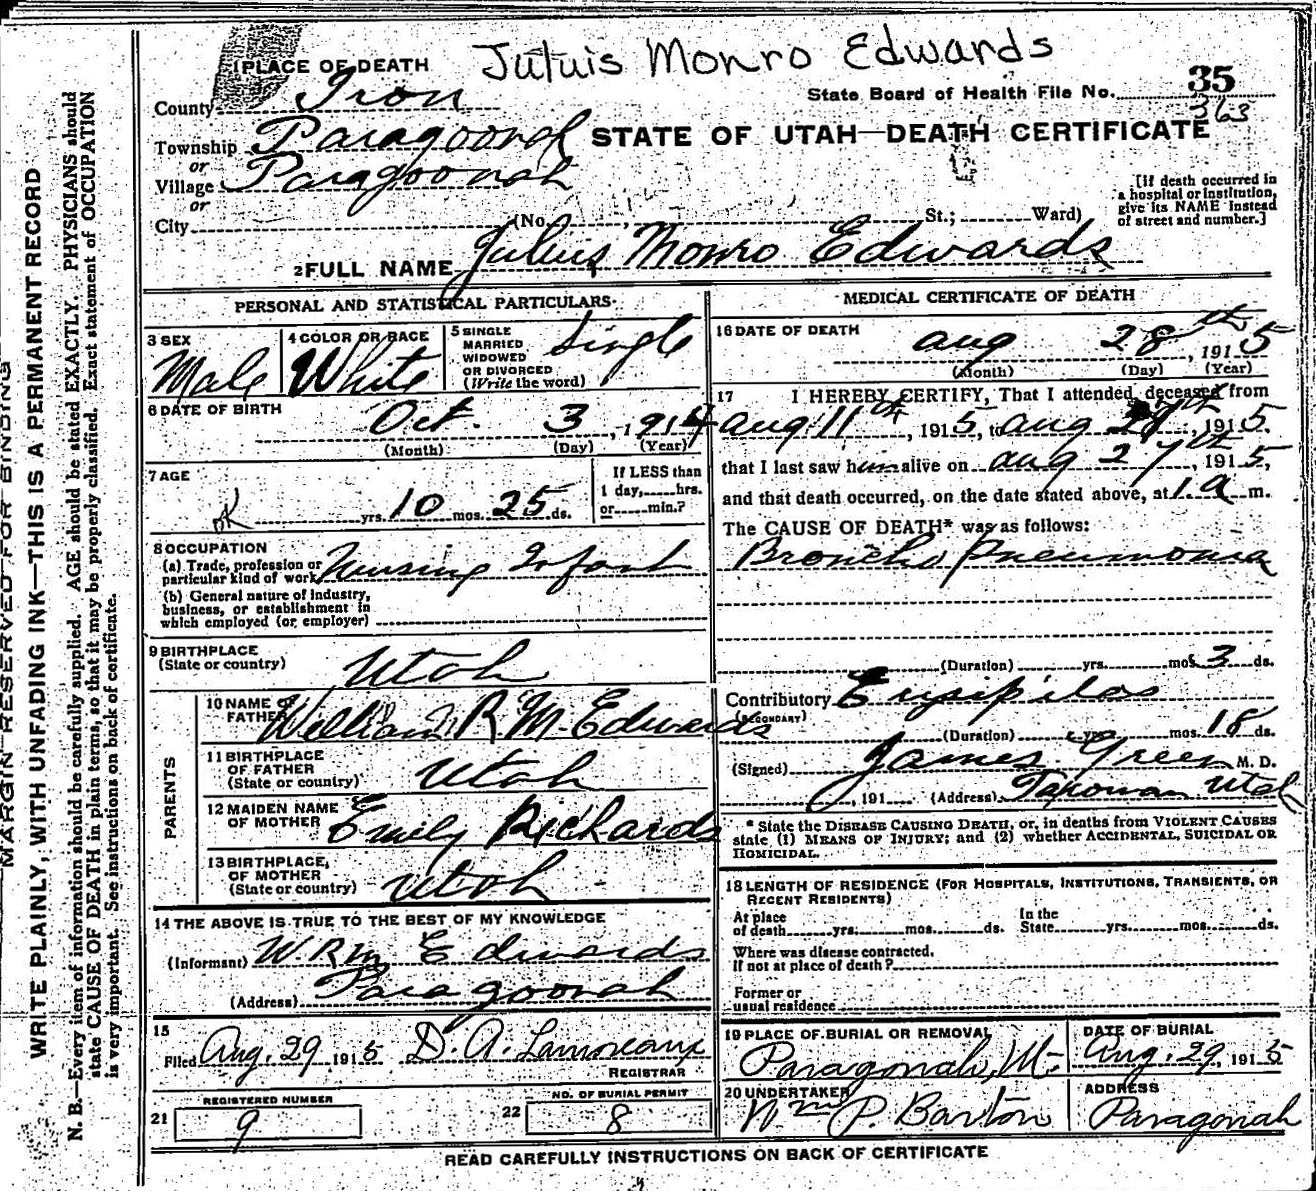 Jutuis Monro Edwards
1 PLACE OF DEATH
County Iron
State Board of Health File No. 35
363
Township Paragoonah
or
Village Paragoonah
or
City
STATE OF UTAH—DEATH CERTIFICATE
(No. St.; Ward)
[If death occurred in a hospital or institution, give its NAME instead of street and number.]
2 FULL NAME Julius Monro Edwards
PERSONAL AND STATISTICAL PARTICULARS
3 SEX
Male
4 COLOR OR RACE
White
5 SINGLE MARRIED WIDOWED OR DIVORCED (Write the word)
Single
6 DATE OF BIRTH
Oct. 3, 1914
(Month) (Day) (Year)
7 AGE
ok yrs. 10 mos. 25 ds.
If LESS than
1 day, hrs.
or min.?
8 OCCUPATION
(a) Trade, profession or
particular kind of work Nursing Infant
(b) General nature of Industry,
business, or establishment in
which employed (or employer)
9 BIRTHPLACE
(State or country) Utah
PARENTS
10 NAME OF
FATHER William R M Edwards
11 BIRTHPLACE
OF FATHER
(State or country) Utah
12 MAIDEN NAME
OF MOTHER Emily Richards
13 BIRTHPLACE,
OF MOTHER
(State or country) Utah
14 THE ABOVE IS TRUE TO THE BEST OF MY KNOWLEDGE
(Informant) W. R M Edwards
(Address) Paragoonah
15
Filed Aug. 29 1915 D. A. Lamoreaux
REGISTRAR
21 REGISTERED NUMBER
9
22 NO. OF BURIAL PERMIT
8
MEDICAL CERTIFICATE OF DEATH
16 DATE OF DEATH
aug 28th, 1915
(Month) (Day) (Year)
17 I HEREBY CERTIFY, That I attended deceased from
aug 11th, 1915, to aug 27th, 1915.
that I last saw him alive on aug 27th, 1915,
and that death occurred, on the date stated above, at 1 a m.
The CAUSE OF DEATH* was as follows:
Broncho Pneumonia
(Duration) yrs. mos. 3 ds.
Contributory Erysipilas
(SECONDARY)
(Duration) yrs. mos. 18 ds.
(Signed) James Green M. D.
, 191 (Address) Parowan Utah
* State the DISEASE CAUSING DEATH, or, in deaths from VIOLENT CAUSES
state (1) MEANS OF INJURY; and (2) whether ACCIDENTAL, SUICIDAL OR
HOMICIDAL.
18 LENGTH OF RESIDENCE (FOR HOSPITALS, INSTITUTIONS, TRANSIENTS, OR
RECENT RESIDENTS)
At place
of death yrs. mos. ds.
In the
State yrs. mos. ds.
Where was disease contracted.
If not at place of death?
Former or
usual residence
19 PLACE OF BURIAL OR REMOVAL
Paragonah, Ut.
DATE OF BURIAL
Aug. 29, 1915
20 UNDERTAKER
Wm P. Barton
ADDRESS
Paragonah
READ CAREFULLY INSTRUCTIONS ON BACK OF CERTIFICATE
MARGIN RESERVED FOR BINDING
WRITE PLAINLY, WITH UNFADING INK—THIS IS A PERMANENT RECORD
N. B.—Every item of information should be carefully supplied. AGE should be stated EXACTLY. PHYSICIANS should
state CAUSE OF DEATH in plain terms, so that it may be properly classified. Exact statement of OCCUPATION
is very important. See instructions on back of certificate.